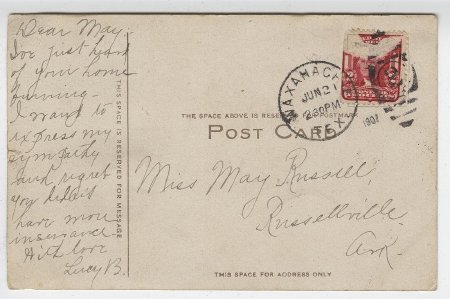 Dear May.
I've just heard
of your home
burning -
I want to
express my
sympathy
and regret
you didn't
have more
insurance
With love
Lucy B.
THIS SPACE IS RESERVED FOR MESSAGE
WAXAHACHIE
JUN 21
2-30PM
TEX.
1907
THE SPACE ABOVE IS RESERVED FOR POSTMARK
POST CARD
Miss May Russell,
Russellville,
Ark.
THIS SPACE FOR ADDRESS ONLY